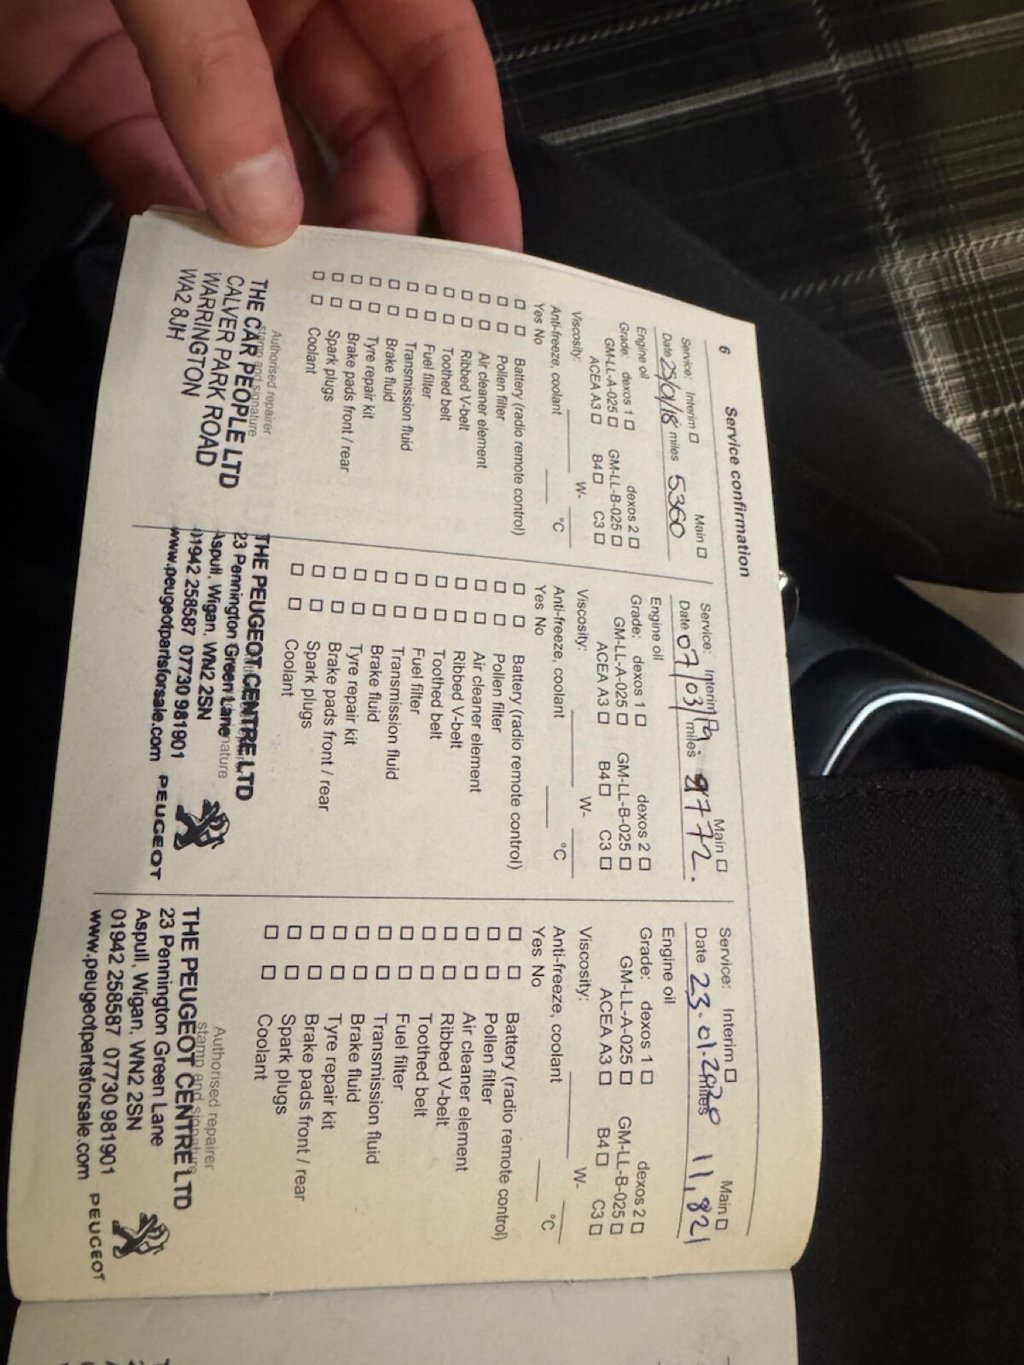 6 Service confirmation
Service: Interim ☐ Main ☐
Date 25/01/18 miles 5360
Engine oil
Grade: dexos 1 ☐ dexos 2 ☐
GM-LL-A-025 ☐ GM-LL-B-025 ☐
ACEA A3 ☐ B4 ☐ C3 ☐
Viscosity: W-
Anti-freeze, coolant °C
Yes No
☐ ☐ Battery (radio remote control)
☐ ☐ Pollen filter
☐ ☐ Air cleaner element
☐ ☐ Ribbed V-belt
☐ ☐ Toothed belt
☐ ☐ Fuel filter
☐ ☐ Transmission fluid
☐ ☐ Brake fluid
☐ ☐ Tyre repair kit
☐ ☐ Brake pads front / rear
☐ ☐ Spark plugs
☐ ☐ Coolant
Authorised repairer
stamp and signature
THE CAR PEOPLE LTD
CALVER PARK ROAD
WARRINGTON
WA2 8JH
Service: Interim ☐ Main ☐
Date 07/03/19. miles 9772.
Engine oil
Grade: dexos 1 ☐ dexos 2 ☐
GM-LL-A-025 ☐ GM-LL-B-025 ☐
ACEA A3 ☐ B4 ☐ C3 ☐
Viscosity: W-
Anti-freeze, coolant °C
Yes No
☐ ☐ Battery (radio remote control)
☐ ☐ Pollen filter
☐ ☐ Air cleaner element
☐ ☐ Ribbed V-belt
☐ ☐ Toothed belt
☐ ☐ Fuel filter
☐ ☐ Transmission fluid
☐ ☐ Brake fluid
☐ ☐ Tyre repair kit
☐ ☐ Brake pads front / rear
☐ ☐ Spark plugs
☐ ☐ Coolant
THE PEUGEOT CENTRE LTD
23 Pennington Green Lane
Aspull, Wigan, WN2 2SN
01942 258587 07730 981901
www.peugeotpartsforsale.com PEUGEOT
Service: Interim ☐ Main ☐
Date 23.01.2020 miles 11,821
Engine oil
Grade: dexos 1 ☐ dexos 2 ☐
GM-LL-A-025 ☐ GM-LL-B-025 ☐
ACEA A3 ☐ B4 ☐ C3 ☐
Viscosity: W-
Anti-freeze, coolant °C
Yes No
☐ ☐ Battery (radio remote control)
☐ ☐ Pollen filter
☐ ☐ Air cleaner element
☐ ☐ Ribbed V-belt
☐ ☐ Toothed belt
☐ ☐ Fuel filter
☐ ☐ Transmission fluid
☐ ☐ Brake fluid
☐ ☐ Tyre repair kit
☐ ☐ Brake pads front / rear
☐ ☐ Spark plugs
☐ ☐ Coolant
Authorised repairer
stamp and signature
THE PEUGEOT CENTRE LTD
23 Pennington Green Lane
Aspull, Wigan, WN2 2SN
01942 258587 07730 981901
www.peugeotpartsforsale.com PEUGEOT